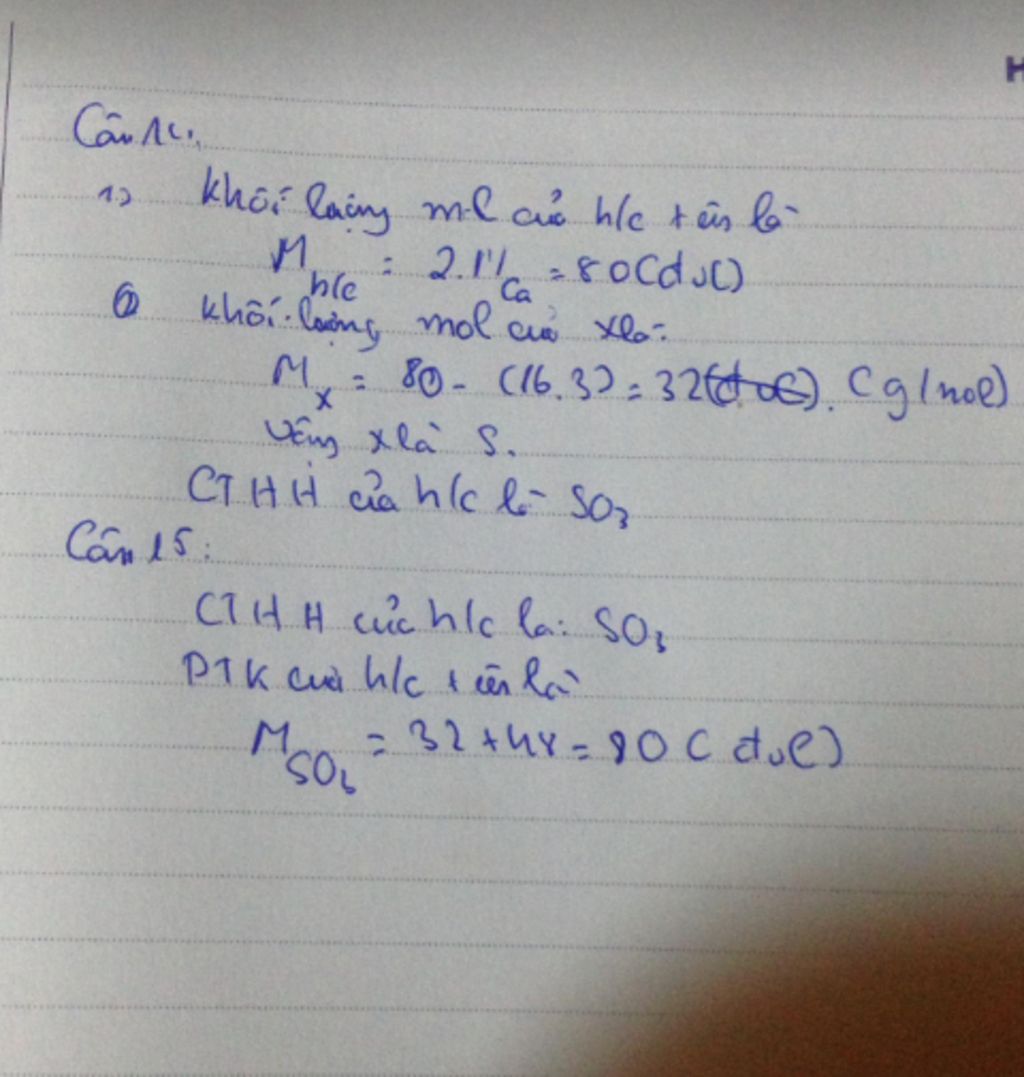 H
Câu 14:
1) khối lượng mol của h/c trên là
M h/c = 2.M Ca = 80 (đvC)
② khối lượng mol của x là:
Mx = 80 - (16.3) = 32 (đvC). (g/mol)
Vậy x là S.
CTHH của h/c là SO3
Câu 15:
CTHH của h/c là: SO3
PTK của h/c trên là
M SO3 = 32 + 48 = 80 (đvC)